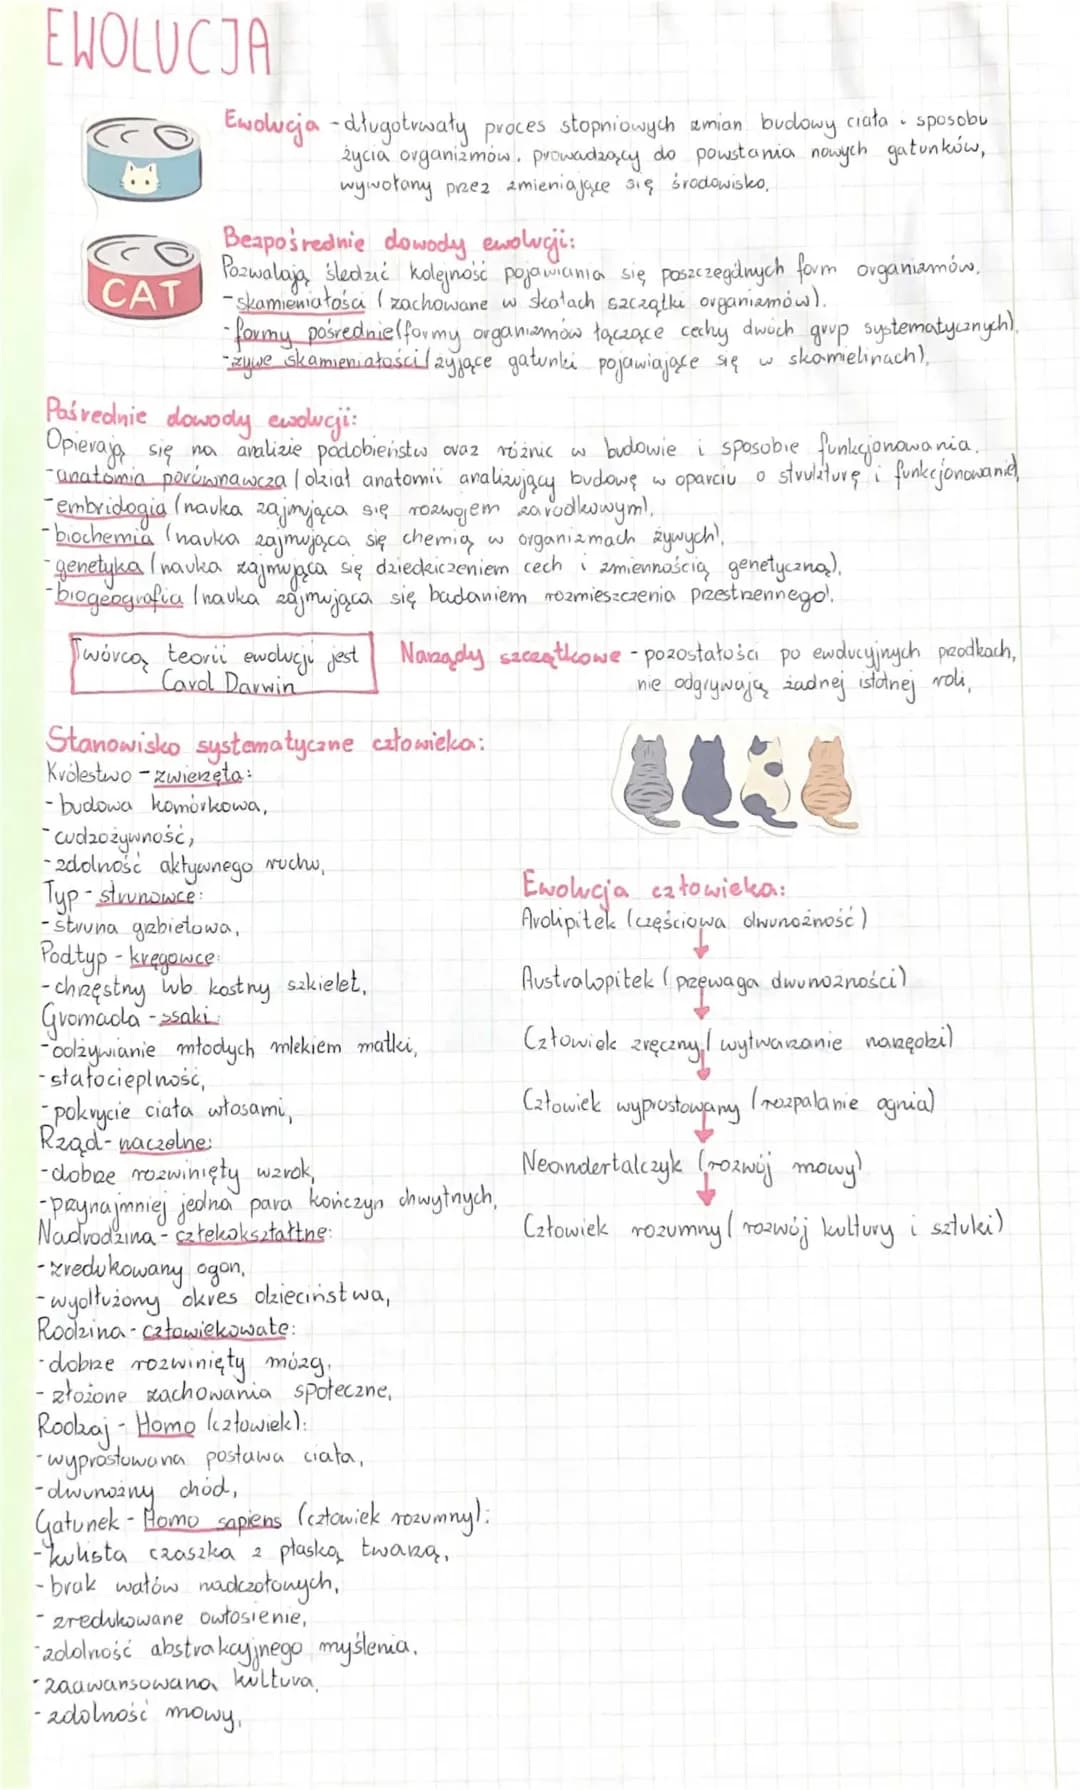 EWOLUCJA
Ewolucja - długotrwały proces stopniowych zmian budowy ciała i sposobu
życia organizmów, prowadzący do powstania nowych gatunków,
wywołany przez zmieniające się środowisko.
CAT
Bezpośrednie dowody ewolucji:
Pozwalają śledzić kolejność pojawiania się poszczególnych form organizmów.
- skamieniałości (zachowane w skałach szczątki organizmów),
- formy pośrednie (formy organizmów łączące cechy dwóch grup systematycznych),
- żywe skamieniałości (żyjące gatunki pojawiające się w skamielinach),
Pośrednie dowody ewolucji:
Opierają się na analizie podobieństw oraz różnic w budowie i sposobie funkcjonowania.
- anatomia porównawcza (dział anatomii analizujący budowę w oparciu o strukturę i funkcjonowanie),
- embriologia (nauka zajmująca się rozwojem zarodkowym),
- biochemia (nauka zajmująca się chemią w organizmach żywych),
- genetyka (nauka zajmująca się dziedziczeniem cech i zmiennością genetyczną),
- biogeografia (nauka zajmująca się badaniem rozmieszczenia przestrzennego).
Twórcą teorii ewolucji jest
Carol Darwin
Narządy szczątkowe - pozostałości po ewolucyjnych przodkach,
nie odgrywają żadnej istotnej roli,
Stanowisko systematyczne człowieka:
Królestwo - zwierzęta:
- budowa komórkowa,
- cudzożywność,
- zdolność aktywnego ruchu,
Typ - strunowce:
- struna grzbietowa,
Podtyp - kręgowce:
- chrzęstny lub kostny szkielet,
Gromada - ssaki:
- odżywianie młodych mlekiem matki,
- stałocieplność,
- pokrycie ciała włosami,
Rząd - naczelne:
- dobrze rozwinięty wzrok,
- przynajmniej jedna para kończyn chwytnych,
Nadrodzina - człekokształtne:
- zredukowany ogon,
- wydłużony okres dzieciństwa,
Rodzina - człowiekowate:
- dobrze rozwinięty mózg,
- złożone zachowania społeczne,
Rodzaj - Homo (człowiek):
- wyprostowana postawa ciała,
- dwunożny chód,
Gatunek - Homo sapiens (człowiek rozumny):
- kulista czaszka z płaską twarzą,
- brak wałów nadczołonych,
- zredukowane owłosienie,
- zdolność abstrakcyjnego myślenia,
- zaawansowana kultura,
- zdolność mowy,
Ewolucja człowieka:
Ardipitek (częściowa dwunożność)
Australopitek (przewaga dwunożności)
Człowiek zręczny (wytwarzanie narzędzi)
Człowiek wyprostowany (rozpalanie ognia)
Neandertalczyk (rozwój mowy)
Człowiek rozumny (rozwój kultury i sztuki)